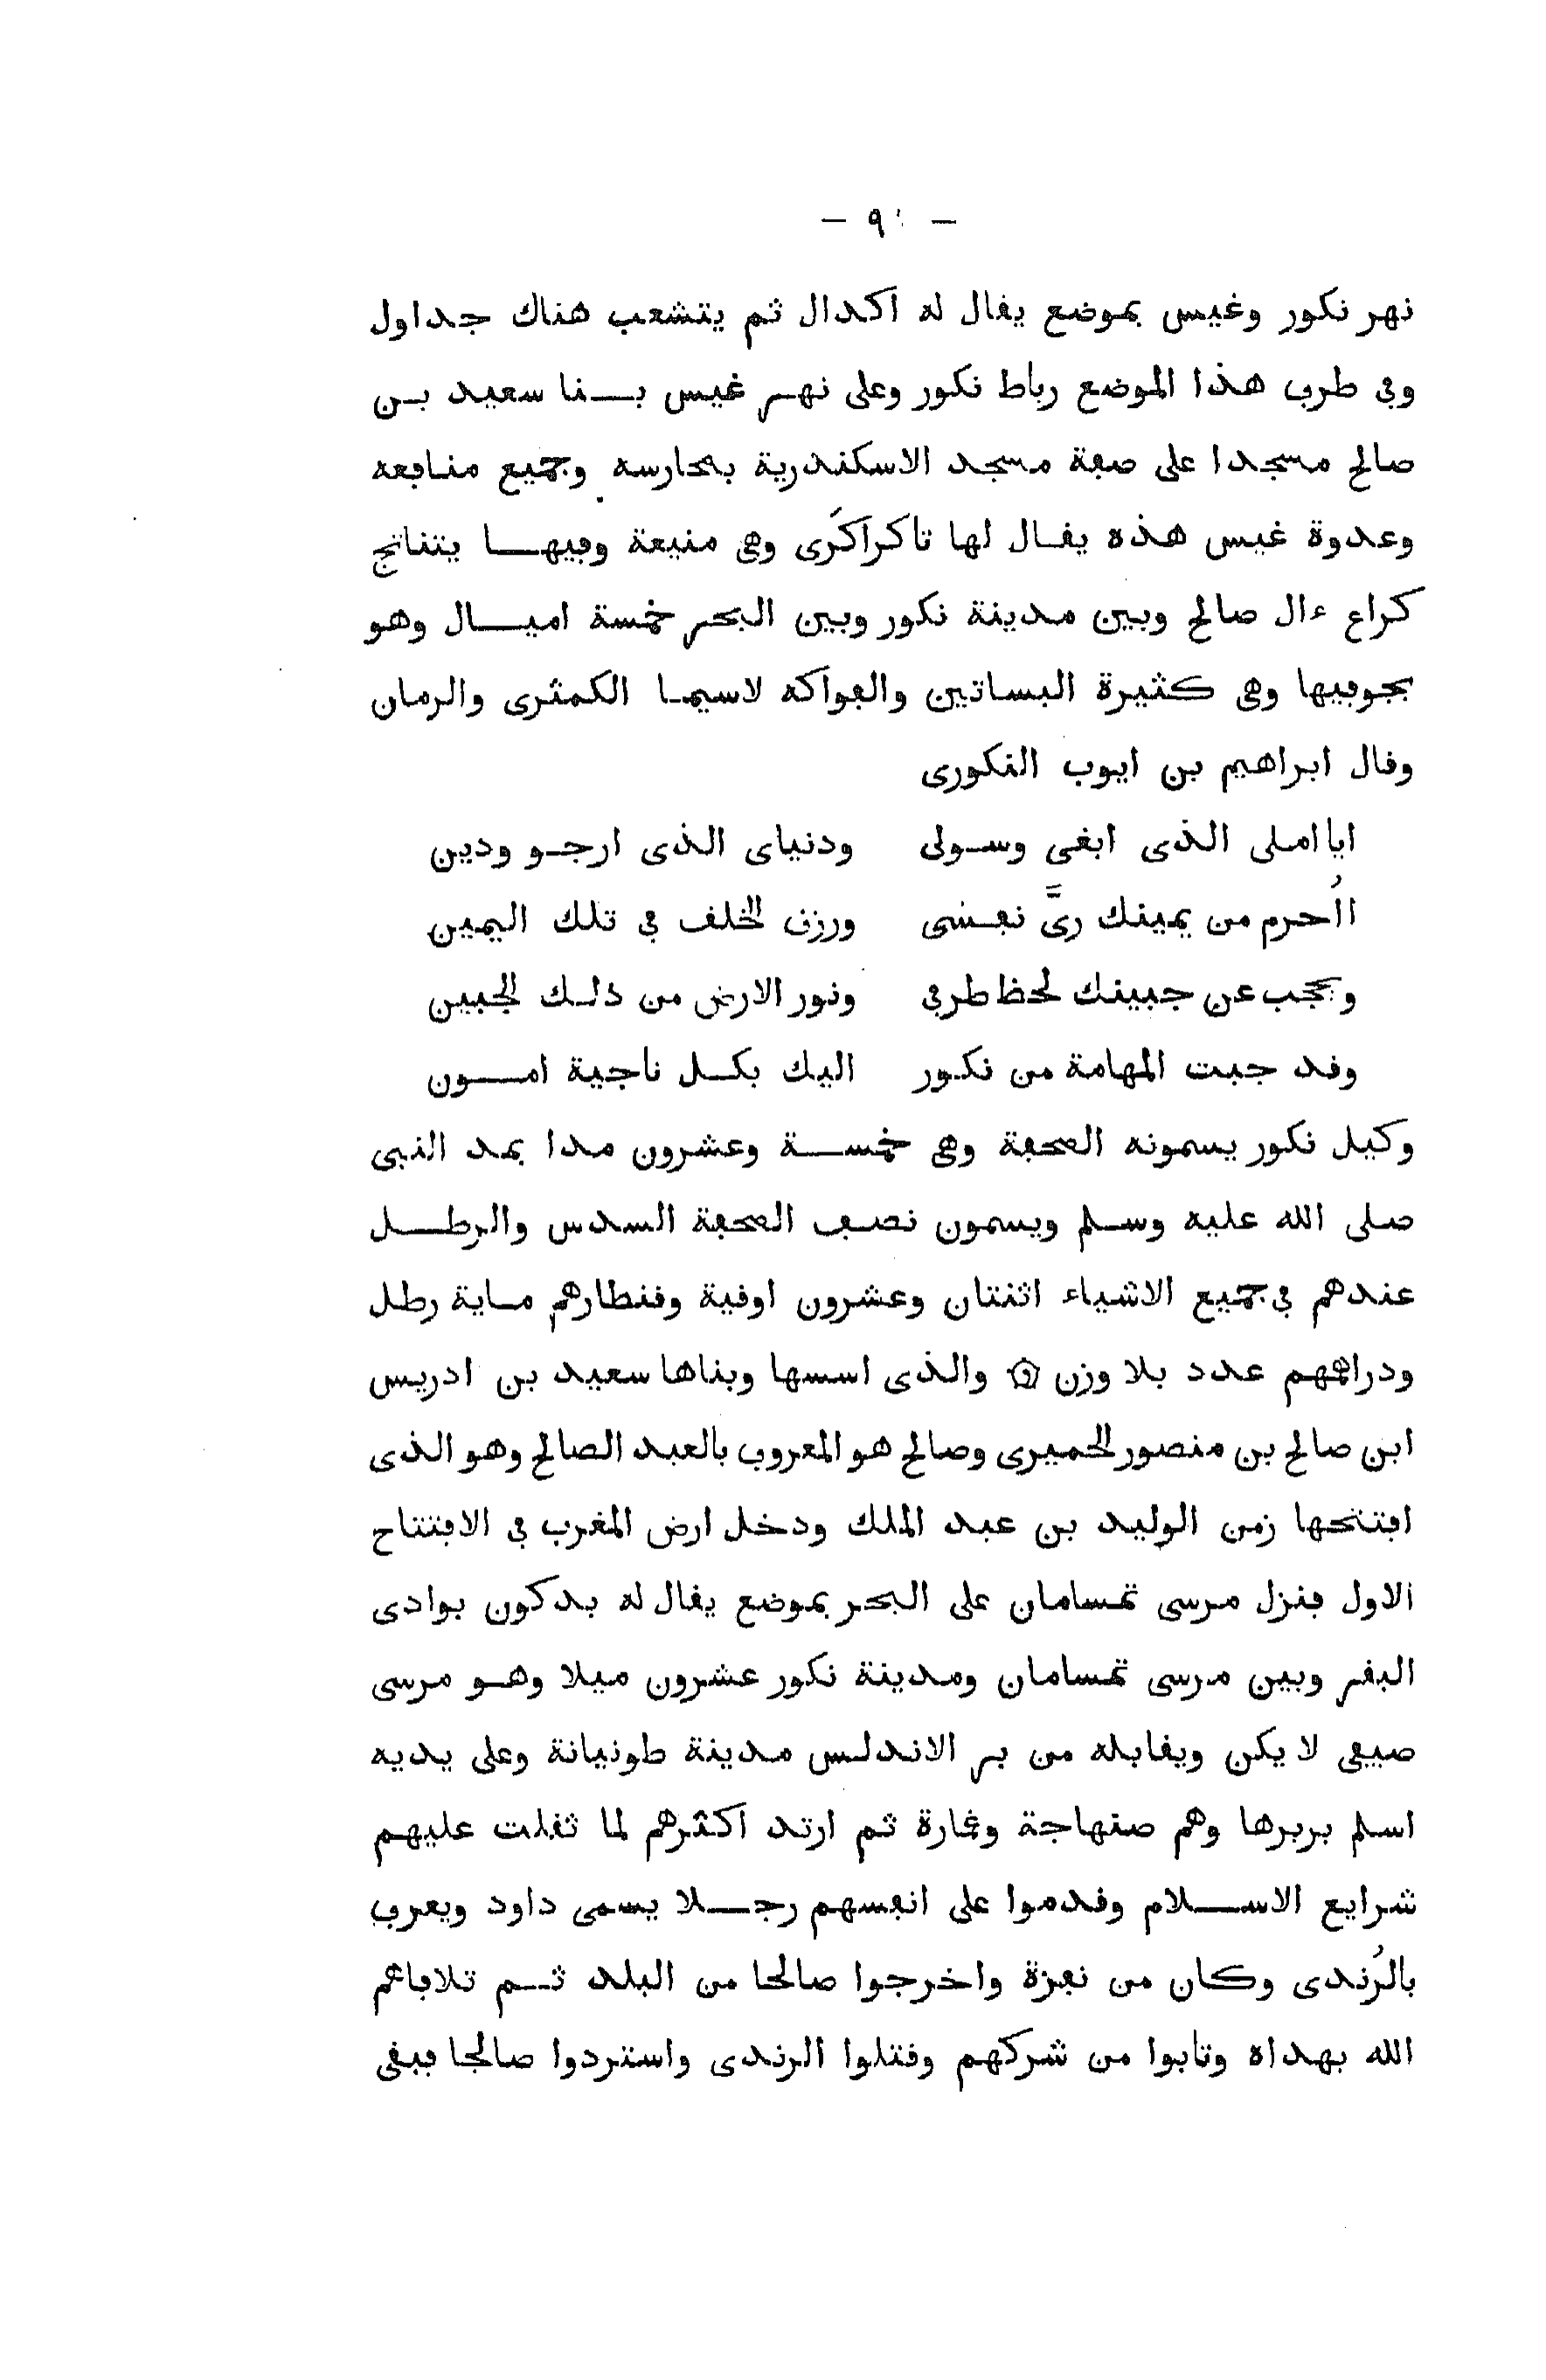 — ٩١ —
نهر نكور وغيس بموضع يقال له اكدال ثم يتشعب هناك جداول
وفى طرف هذا الموضع رباط نكور وعلى نهر غيس بنا سعيد بن
صالح مسجدا على صفة مسجد الاسكندرية بمحارسه وجميع منافعه
وعدوة غيس هذه يقال لها تاكراكَرى وهى منيعة وفيها يتناتج
كراع ءال صالح وبين مدينة نكور وبين البحر خمسة اميال وهو
بجوفيها وهى كثيرة البساتين والفواكه لاسيما الكمثرى والرمان
وقال ابراهيم بن ايوب النكورى
ايا املى الذى ابغى وسولى ودنياى الذى ارجو ودين
اأُحرم من يمينك رىَّ نفسى ورزق الخلف فى تلك اليمين
ويحجب عن جبينك لحظ طرفى ونور الارض من ذلك الجبين
وقد جبت المهامة من نكور اليك بكل ناجية امون
وكيل نكور يسمونه الصحفة وهى خمسة وعشرون مدا بمد النبى
صلى الله عليه وسلم ويسمون نصف الصحفة السدس والرطل
عندهم فى جميع الاشياء اثنتان وعشرون اوقية وقنطارهم ماية رطل
ودراهمهم عدد بلا وزن ۞ والذى اسسها وبناها سعيد بن ادريس
ابن صالح بن منصور الحميرى وصالح هو المعروف بالعبد الصالح وهو الذى
افتتحها زمن الوليد بن عبد الملك ودخل ارض المغرب فى الافتتاح
الاول فنزل مرسى تمسامان على البحر بموضع يقال له بدكون بوادى
البقر وبين مرسى تمسامان ومدينة نكور عشرون ميلا وهو مرسى
صيفى لا يكن ويقابله من بر الاندلس مدينة طونيانة وعلى يديه
اسلم بربرها وهم صنهاجة وغمارة ثم ارتد اكثرهم لما ثقلت عليهم
شرايع الاسلام وقدموا على انفسهم رجلا يسمى داود ويعرف
بالرُندى وكان من نفزة واخرجوا صالحا من البلد ثم تلافاهم
الله بهداه وتابوا من شركهم وقتلوا الرندى واستردوا صالحا فبقى